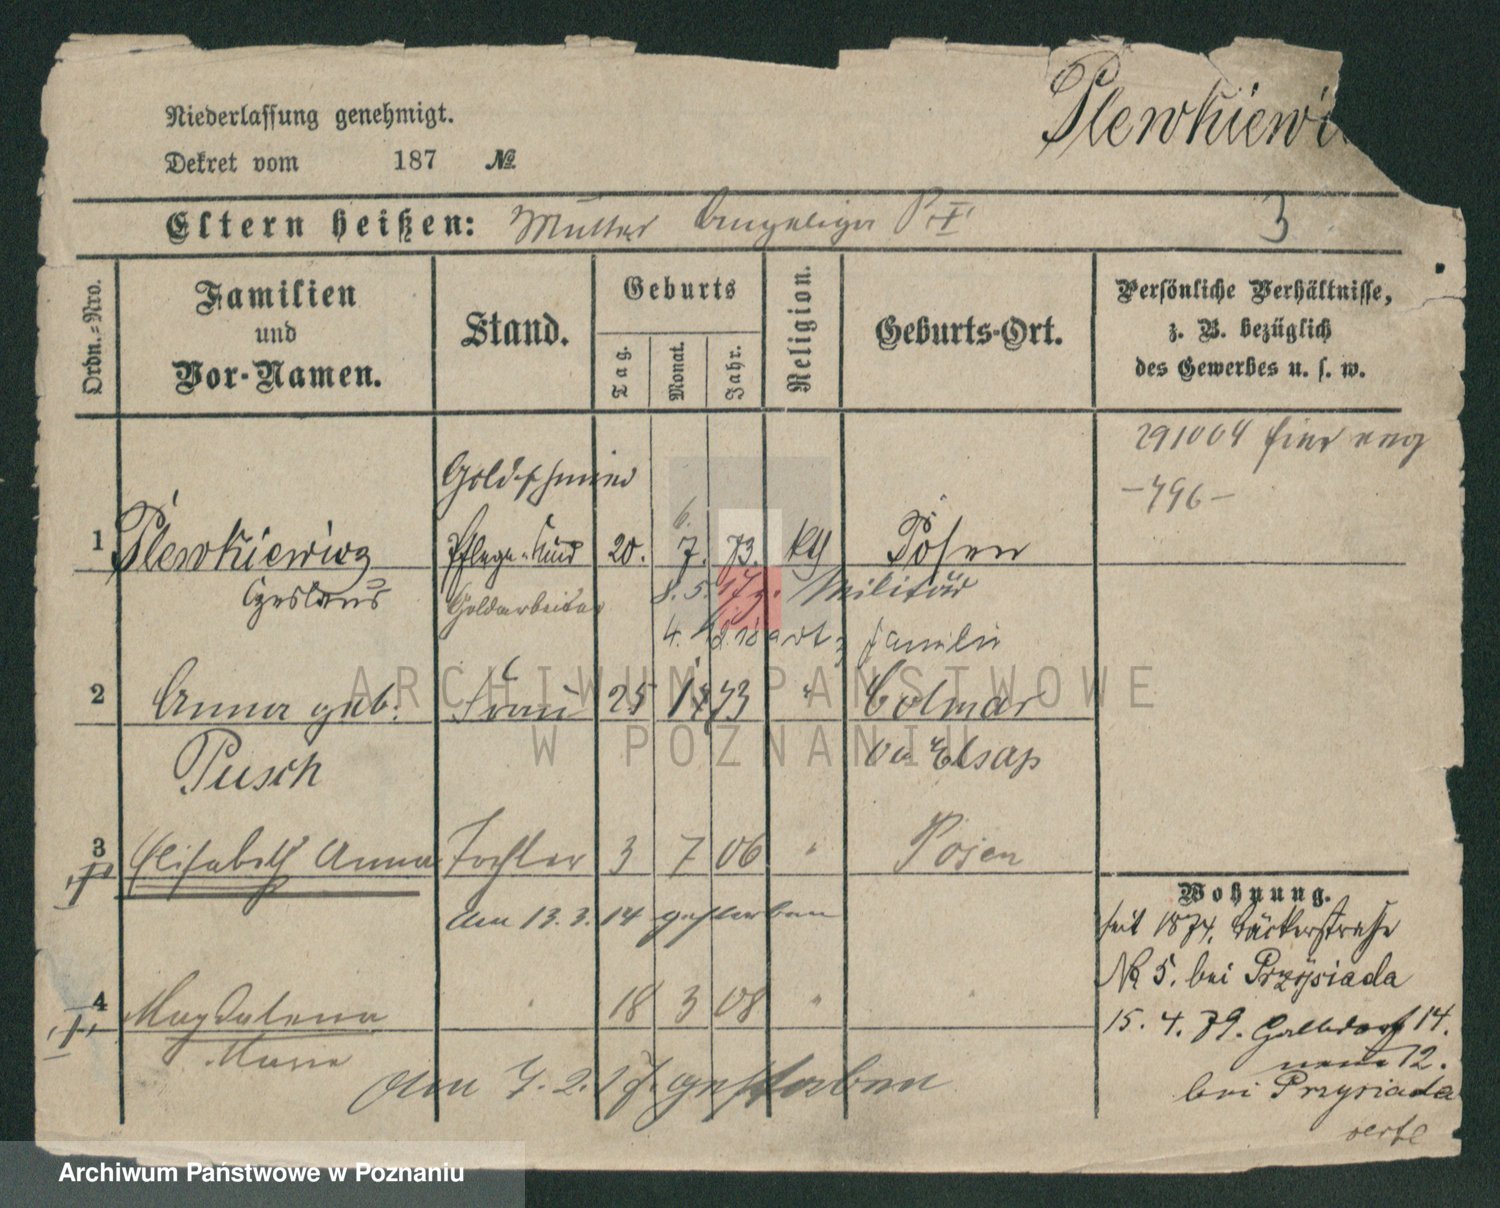 Plewkiewi
Niederlassung genehmigt.
Dekret vom 187 №
Eltern heißen: Mutter 3
Ordn.-Nro.
Familien und Vor-Namen.
Stand.
Geburts
Tag. Monat. Jahr.
Religion.
Geburts-Ort.
Persönliche Verhältnisse,
z. B. bezüglich
des Gewerbes u. s. w.
291004
-496-
Goldschmied
6.
1 Plewkiewicz Pflege-Kind 20. 7. 73. kth Posen
Czeslaus Goldarbeiter 8. 5. Militär
4. familie
2 Anna geb. Frau 25 1 73 " Colmar
Pusch Elsaß
3 Elisabeth Anna Tochter 3 7 06 " Posen
am 13. 3. 14 gestorben
4 Magdalena " 18 3 08 " "
Maria
am 7. 2. gestorben
Wohnung.
seit 1874. Bäckerstraße
No 5. bei Przysiada
15. 4. 79. Halbdorf 14.
neue 12.
bei Przysiada
ARCHIWUM PAŃSTWOWE
W POZNANIU
Archiwum Państwowe w Poznaniu